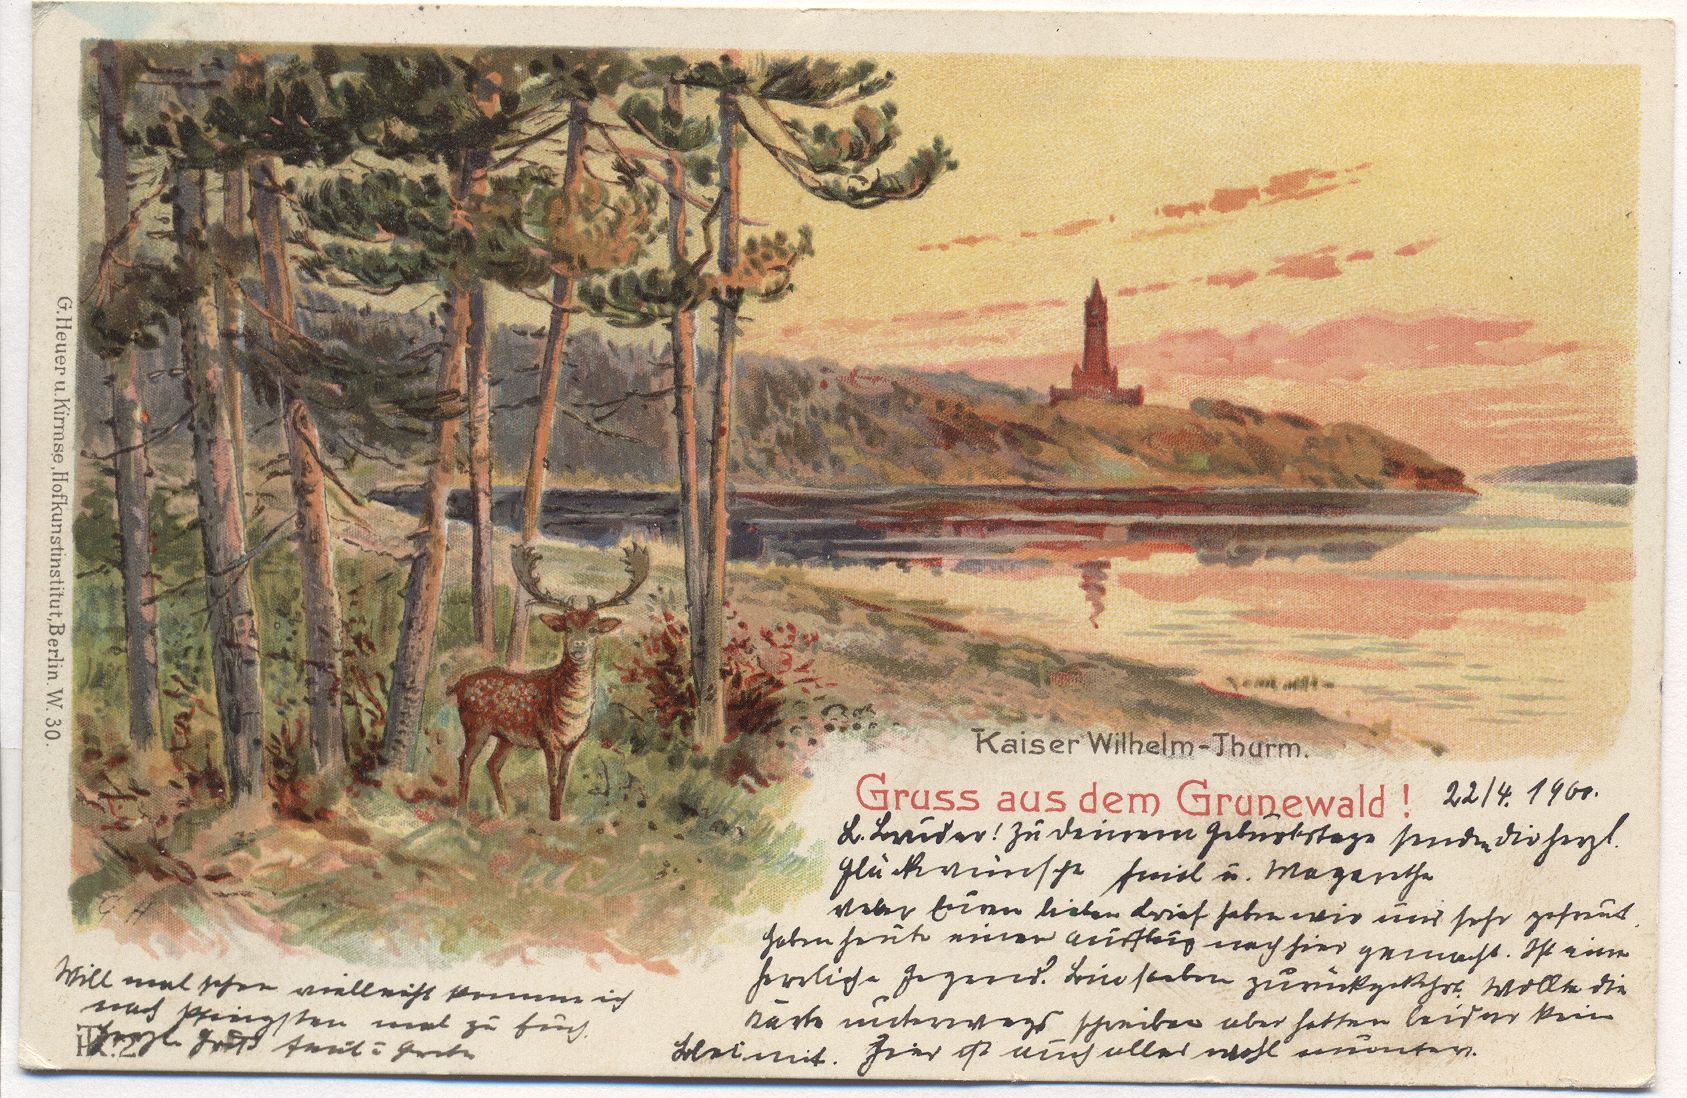 G. Heuer u. Kirmse, Hofkunstinstitut, Berlin. W. 30.
Kaiser Wilhelm-Thurm.
Gruss aus dem Grunewald! 22/4. 1900.
L. Bruder! Zu deinem Geburtstage senden die herzl.
Glückwünsche Emil u. Magarethe
Ueber Euren lieben Brief haben wir uns sehr gefreut.
Haben heute einen Ausflug nach hier gemacht. Ist eine
herrliche Gegend. Bin soeben zurückgekehrt. Wollte die
Karte unterwegs schreiben aber hatten leider kein
Blei mit. Hier ist auch alles wohl munter.
Will mal sehen vielleicht komme ich
nach Pfingsten mal zu Euch.
Herzl. Gruß
G H